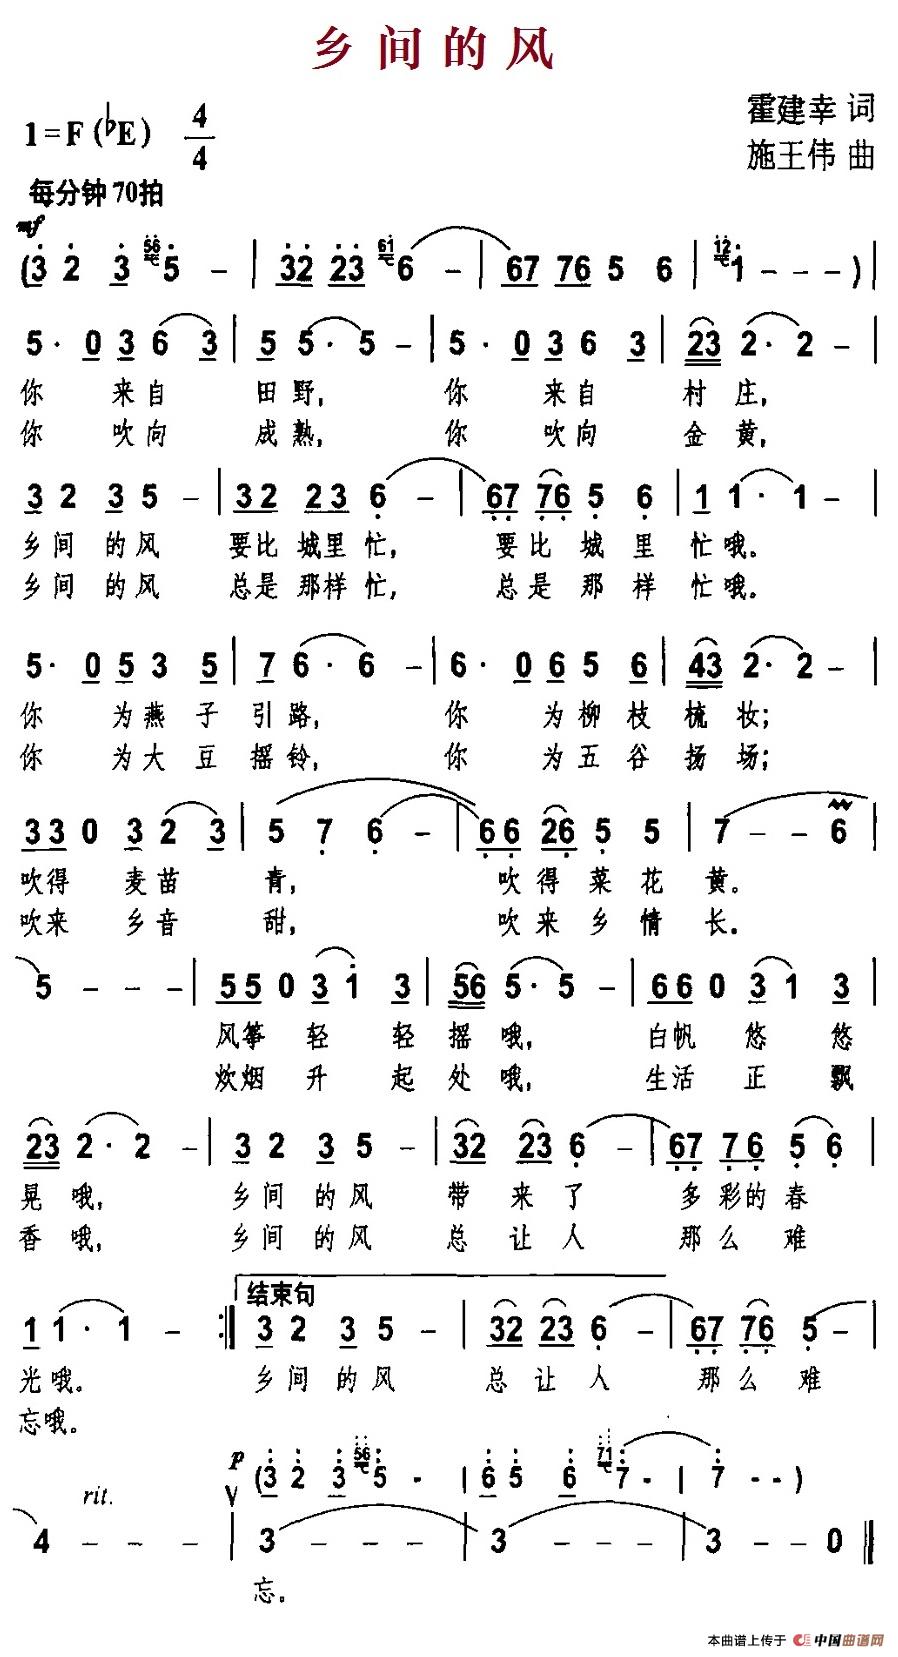 乡间的风
霍建幸 词
1=F(♭E) 4/4
施王伟 曲
每分钟70拍
mf
(3 2 3 56 5 - | 32 23 61 6 - | 67 76 5 6 | 12 1 - - - )|
5· 0 3 6 3 | 5 5· 5 - | 5· 0 3 6 3 | 23 2· 2 - |
你 来自 田野, 你 来自 村庄,
你 吹向 成熟, 你 吹向 金黄,
3 2 3 5 - | 32 23 6 - | 67 76 5 6 | 1 1· 1 - |
乡间 的风 要比 城里 忙, 要比 城里 忙哦。
乡间 的风 总是 那样 忙, 总是 那样 忙哦。
5· 0 5 3 5 | 7 6· 6 - | 6· 0 6 5 6 | 43 2· 2 - |
你 为燕子 引路, 你 为柳枝 梳妆;
你 为大豆 摇铃, 你 为五谷 扬场;
3 3 0 3 2 3 | 5 7 6 - | 6 6 26 5 5 | 7 - - 6 |
吹得 麦苗 青, 吹得 菜花 黄。
吹来 乡音 甜, 吹来 乡情 长。
5 - - - | 5 5 0 3 1 3 | 56 5· 5 - | 6 6 0 3 1 3 |
风筝 轻轻 摇哦, 白帆 悠悠
炊烟 升起 处哦, 生活 正飘
23 2· 2 - | 3 2 3 5 - | 32 23 6 - | 67 76 5 6 |
晃哦, 乡间 的风 带来了 多彩的春
香哦, 乡间 的风 总让人 那么难
结束句
1 1· 1 - :| 3 2 3 5 - | 32 23 6 - | 67 76 5 - |
光哦。 乡间 的风 总让人 那么难
忘哦。
p (3 2 3 56 5 - | 6 5 6 71 7 - | 7 - - )
rit.
4 - - - | 3 - - - | 3 - - - | 3 - - 0 ‖
忘。
本曲谱上传于 中国曲谱网